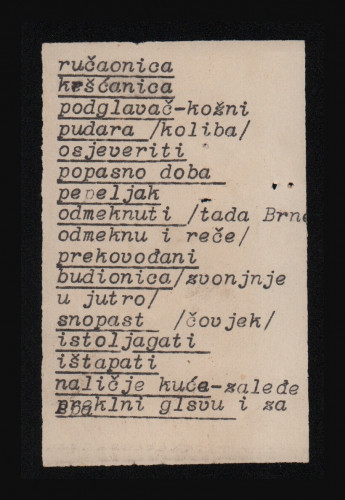 ručaonica
kršćanica
podglavač-kožni
pudara /koliba/
osjeveriti
popasno doba
pepeljak
odmeknuti /tada Brne
odmeknu i reče/
prekovođani
budionica/zvonjnje
u jutro/
snopast /čovjek/
istoljagati
ištapati
naličje kuće-zaleđe
preklni glsvu i za